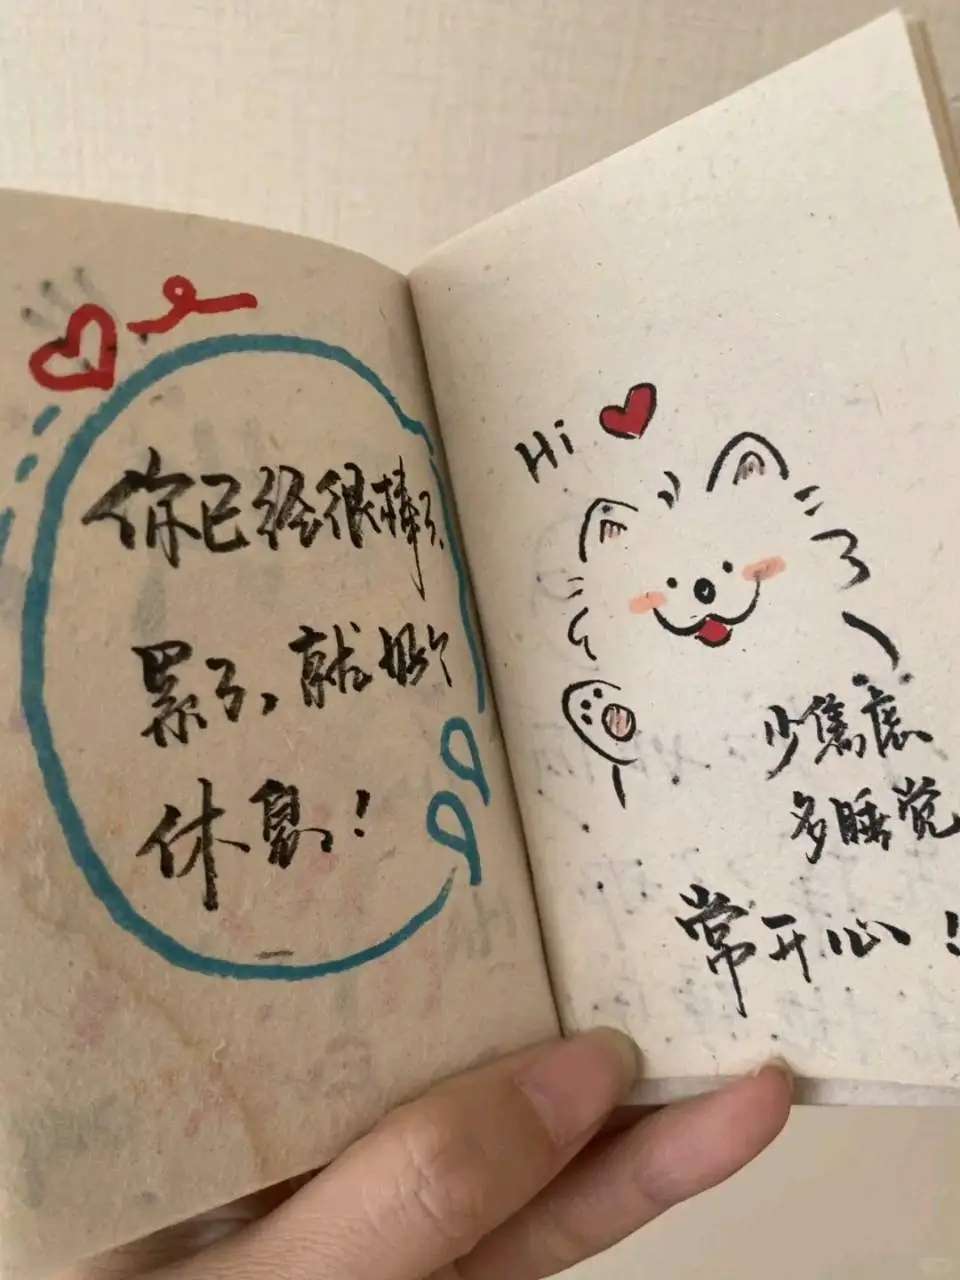 你已经很棒了、
累了,就个
休息!
Hi
少焦虑
多睡觉
常开心!